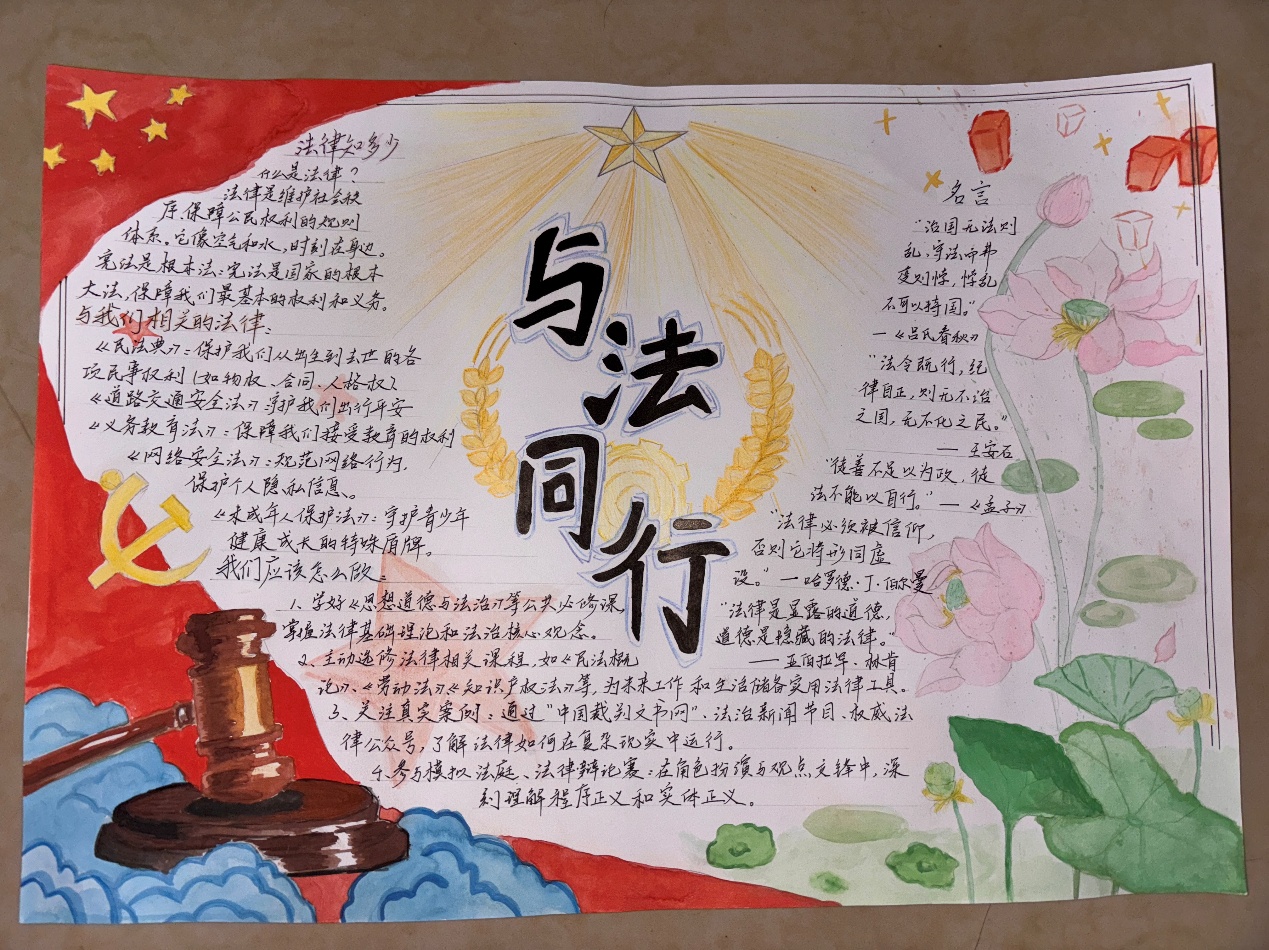 法律知多少
什么是法律？
法律是维护社会秩
序、保障公民权利的规则
体系。它像空气和水，时刻在身边。
宪法是根本法：宪法是国家的根本
大法，保障我们最基本的权利和义务。
与我们相关的法律：
《民法典》：保护我们从出生到去世的各
项民事权利（如物权、合同、人格权）
《道路交通安全法》：守护我们出行平安
《义务教育法》：保障我们接受教育的权利
《网络安全法》：规范网络行为，
保护个人隐私信息、。
《未成年人保护法》：守护青少年
健康成长的特殊盾牌。
我们应该怎么做：
1、学好《思想道德与法治》等公共必修课
掌握法律基础理论和法治核心观念。
2、主动选修法律相关课程，如《民法概
论》、《劳动法》《知识产权法》等，为未来工作和生活储备实用法律工具。
3、关注真实案例：通过“中国裁判文书网”、法治新闻节目、权威法
律公众号，了解法律如何在复杂现实中运行。
4、参与模拟法庭、法律辩论赛：在角色扮演与观点交锋中，深
刻理解程序正义和实体正义。
与
法
同
行
名言
“治国无法则
乱，守法而弗
变则悖，悖乱
不可以持国。”
—《吕氏春秋》
“法令既行，纪
律自正，则无不治
之国，无不化之民。”
——王安石
“徒善不足以为政，徒
法不能以自行。”—《孟子》
“法律必须被信仰，
否则它将形同虚
设。”—哈罗德·J·伯尔曼
“法律是显露的道德，
道德是隐藏的法律。”
——亚伯拉罕·林肯